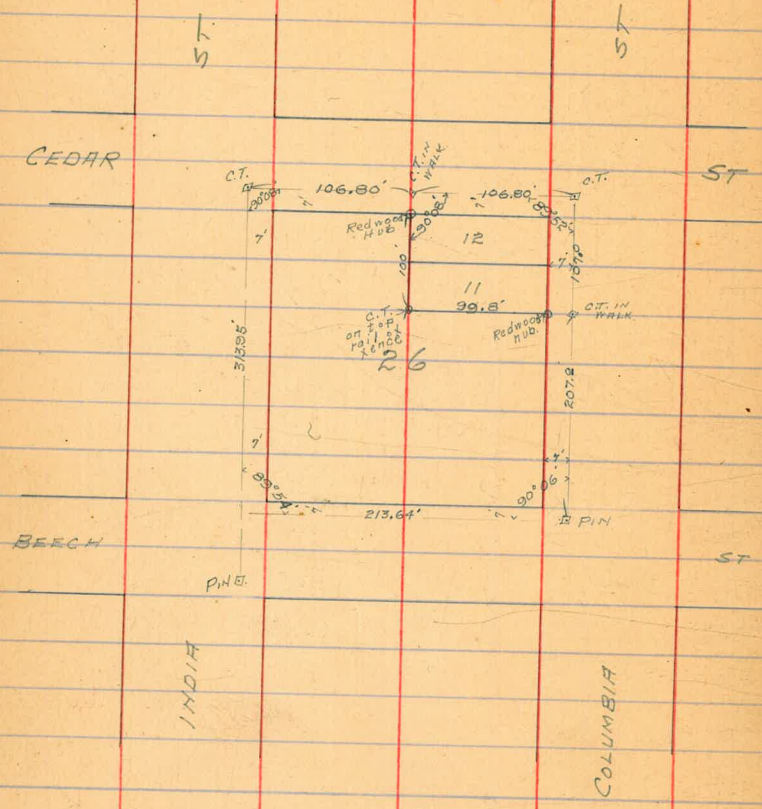 ST.
ST.
CEDAR
ST
C.T.
106.80'
C.T. IN
WALK
106.80'
C.T.
90°08'
7'
90°08'
7'
89°52'
Redwood
Hub
12
7'
100'
7'
107.0
11
99.8'
C.T.
on top
rail of
fence
Redwood
Hub.
C.T. IN
WALK.
26
313.95'
207.2
7'
7'
89°54'
7'
213.64'
7'
90°06'
PIN
BEECH
ST
PIN
INDIA
COLUMBIA